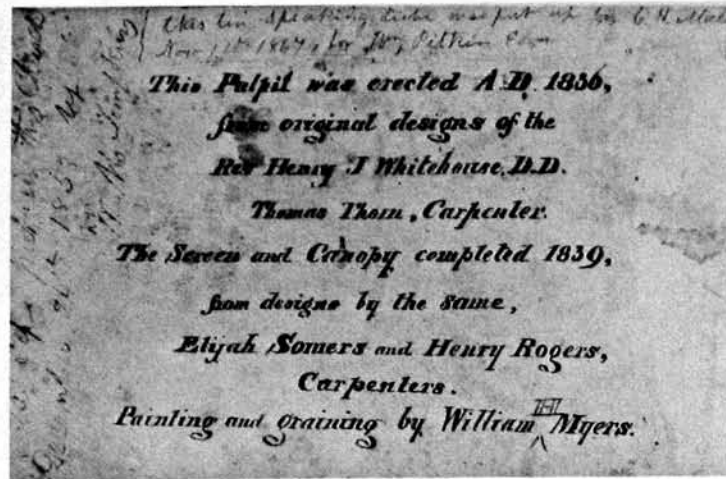 this tin speaking tube was put up by C H
Nov 1867, for Wm Pitkin Esqr
This Pulpit was erected A.D. 1836,
from original designs of the
Rev Henry J Whitehouse, D.D.
Thomas Thorn, Carpenter.
The Screen and Canopy completed 1839,
from designs by the same,
Elijah Somers and Henry Rogers,
Carpenters.
Painting and graining by William H Myers.